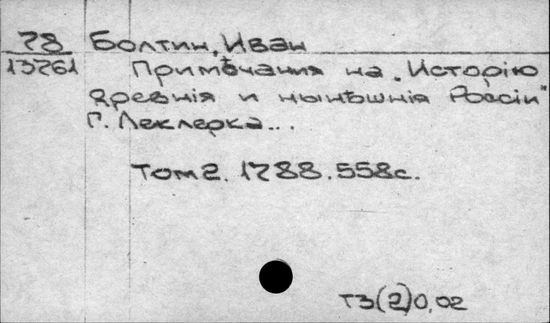 78 Болтин, Иван
13761 Примѣчания на „Исторію
древнія и нынѣшнія Россіи"
Г. Леклерка...
Том 2. 1788. 558с.
Т3(2)0,02